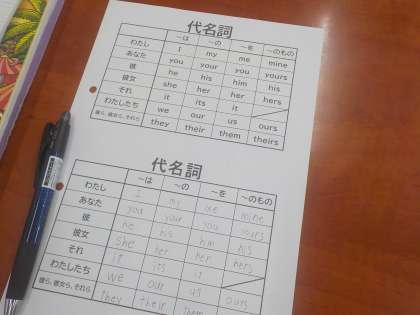 代名詞
～は ～の ～を ～のもの
わたし I my me mine
あなた you your you yours
彼 he his him his
彼女 she her her hers
それ it its it
わたしたち we our us ours
彼ら, 彼女ら, それら they their them theirs
代名詞
～は ～の ～を ～のもの
わたし I my me mine
あなた you your you yours
彼 he his him his
彼女 she her her hers
それ it its it
わたしたち we our us ours
彼ら, 彼女ら, それら they their them